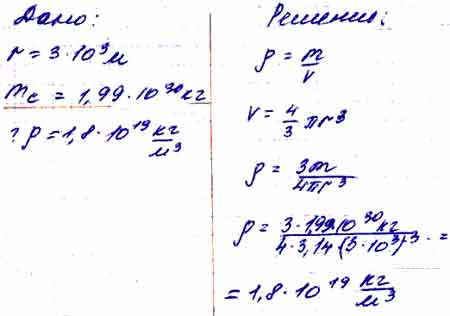 Дано:
r = 3·10³ м
mc = 1,99·10³⁰ кг
? ρ = 1,8·10¹⁹ кг/м³
Решение:
ρ = m/V
V = 4/3 πr³
ρ = 3m/4πr³
ρ = 3·1,99·10³⁰ кг/4·3,14·(3·10³)³ · =
= 1,8·10¹⁹ кг/м³